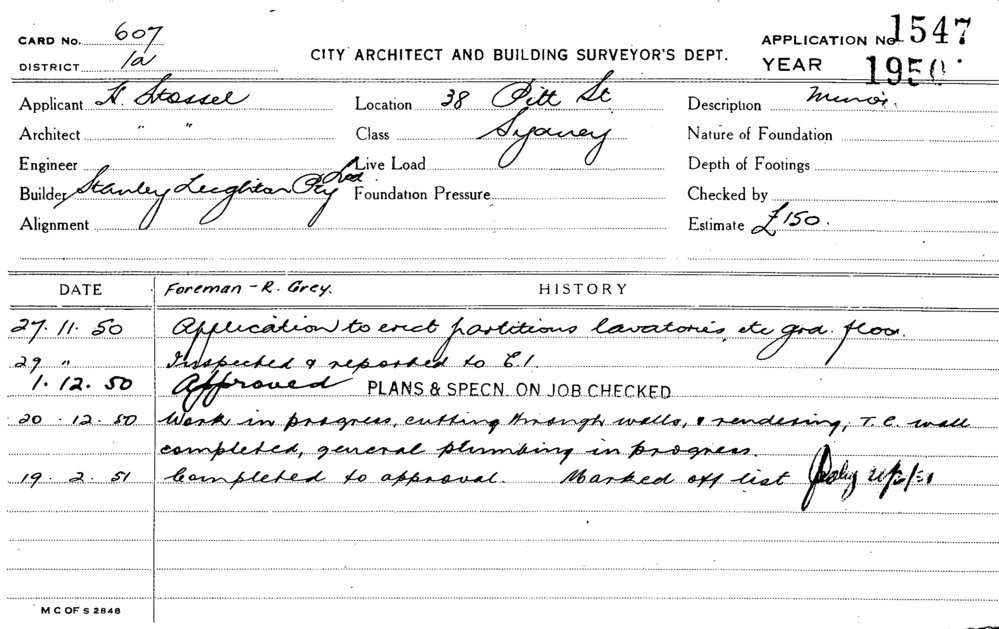 CARD No. 607
DISTRICT 1a
CITY ARCHITECT AND BUILDING SURVEYOR'S DEPT.
APPLICATION No 1547
YEAR 1950
Applicant H. Stossel Location 38 Pitt St Description Minor.
Architect " " Class Sydney Nature of Foundation
Engineer Live Load Depth of Footings
Builder Stanley Leighton Pty Ltd. Foundation Pressure Checked by
Alignment Estimate £150.
DATE Foreman - R. Grey. HISTORY
27. 11. 50 Application to erect partitions lavatories etc grd. floor.
29 " Inspected & reported to E.I.
1. 12. 50 Approved PLANS & SPECN. ON JOB CHECKED
20. 12. 50 Work in progress, cutting through walls, & rendering, T.C. wall
completed, general plumbing in progress.
19. 2. 51 Completed to approval. Marked off list
M C OF S 2848